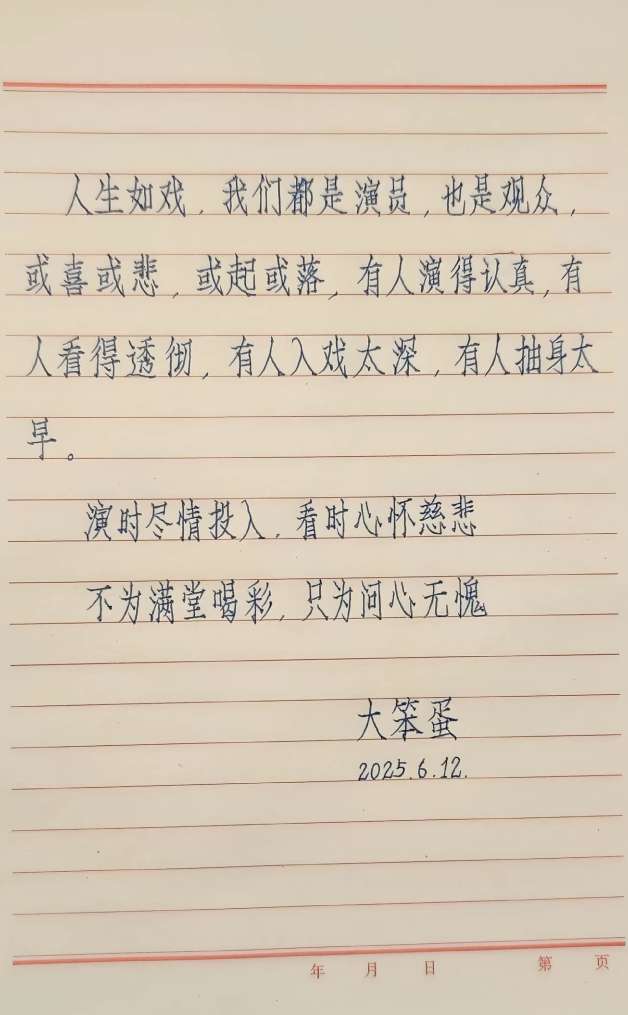 人生如戏，我们都是演员，也是观众，
或喜或悲，或起或落，有人演得认真，有
人看得透彻，有人入戏太深，有人抽身太
早。
演时尽情投入，看时心怀慈悲
不为满堂喝彩，只为问心无愧
大笨蛋
2025.6.12.
年 月 日 第 页